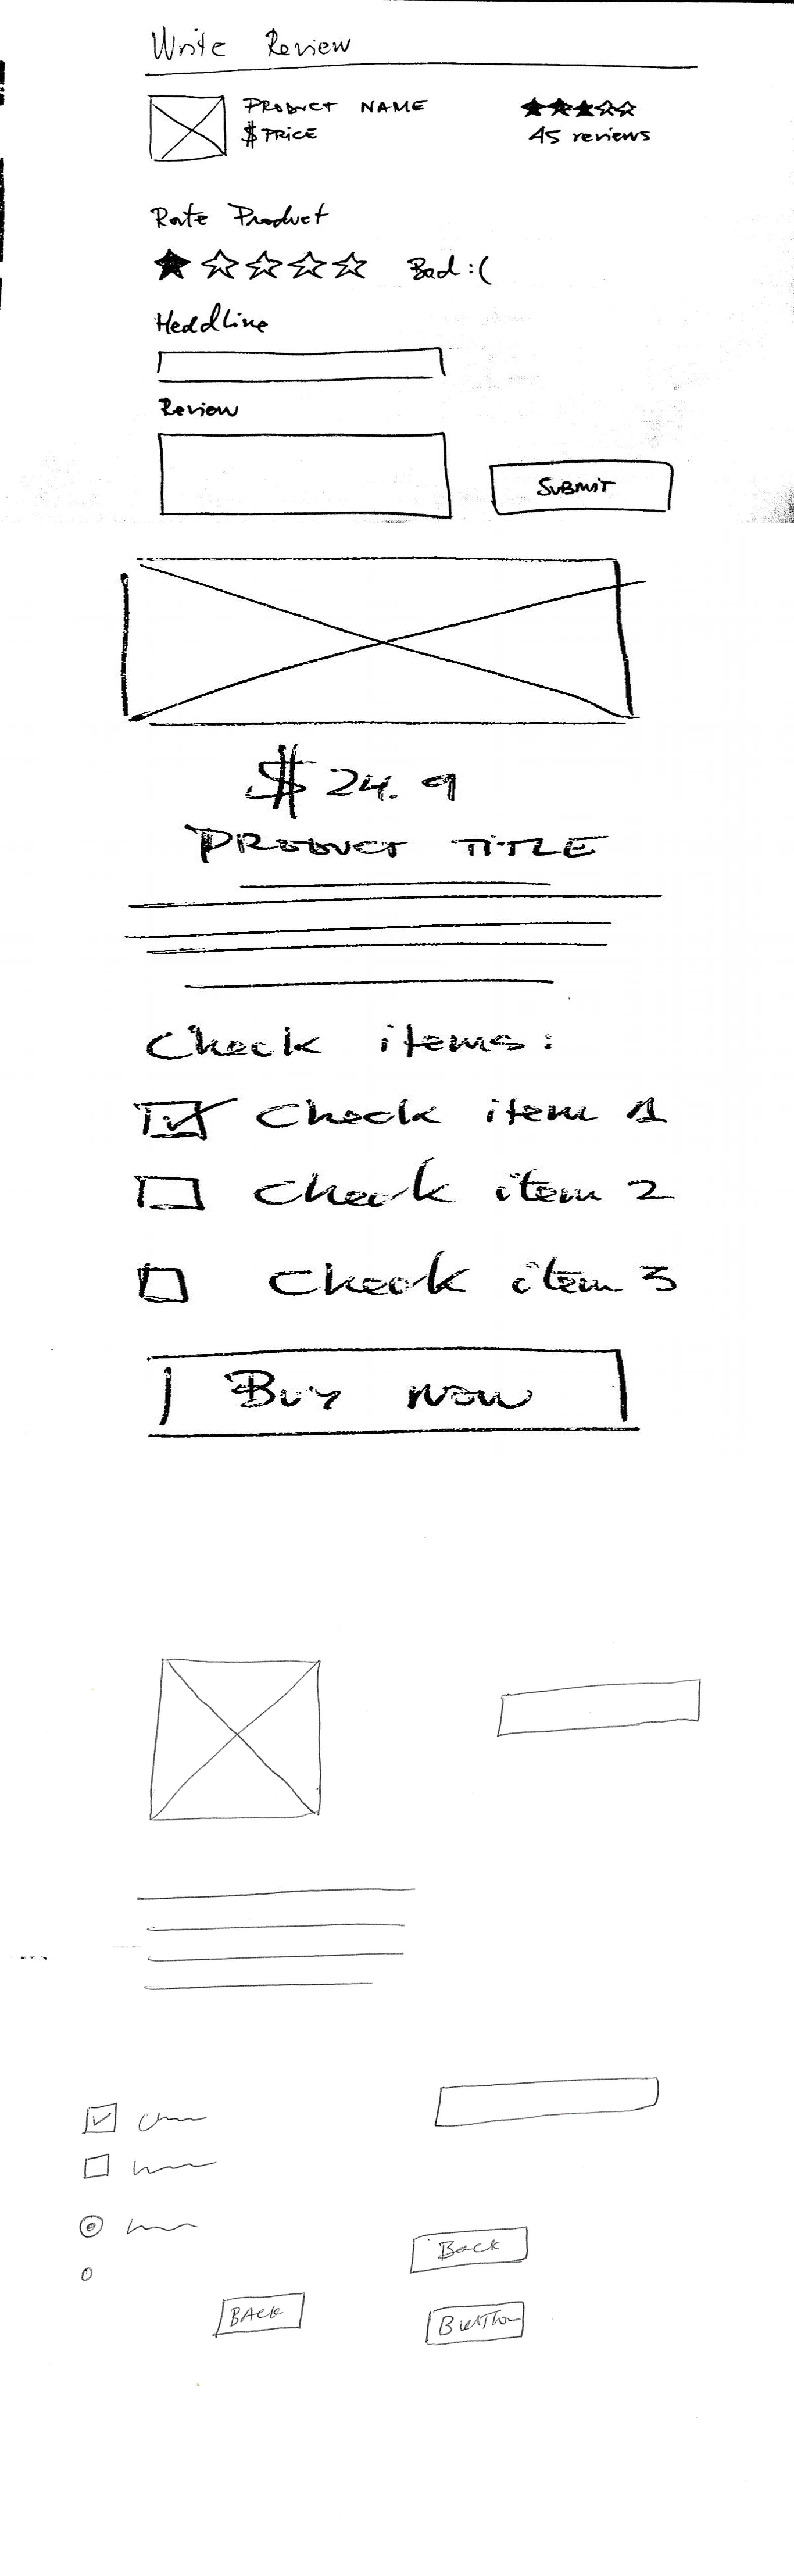 Write Review
PRODUCT NAME
$ PRICE
45 reviews
Rate Product
Bad :(
Headline
Review
SUBMIT
$ 24.9
PRODUCT TITLE
Check items:
Check item 1
Check item 2
Check item 3
Buy now
Back
BACK
Button